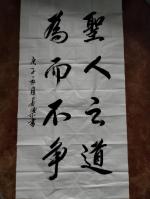 聖人之道
為而不争